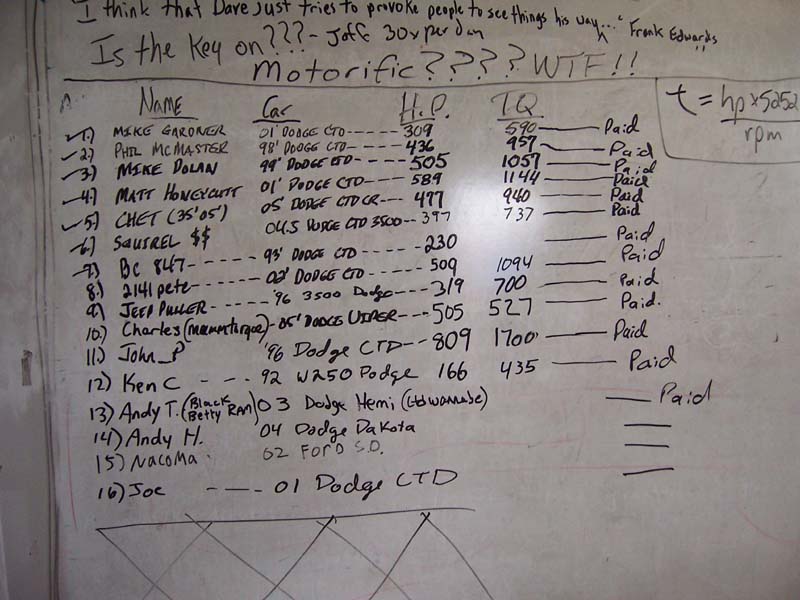 I think that Dave just tries to provoke people to see things his way..." Frank Edwards
Is the Key on??? - Joff 30x per day
Motorific???? WTF!!
Name Car H.P. TQ
t = hp x 5252
rpm
✓ 1.) MIKE GARDNER 01' DODGE CTD----- 309 590 —— Paid
✓ 2.) PHIL MCMASTER 98' DODGE CTD----- 436 957 —— Paid
✓ 3.) MIKE DOLAN 99' DODGE CTD---- 505 1057 —— Paid
✓ 4.) MATT HONEYCUTT 01' DODGE CTD----- 589 1144 —— Paid
✓ 5.) CHET (35'05') 05' DODGE CTD CR---- 477 940 —— Paid
✓ 6.) SQUIREL $$ 04.5 DODGE CTD 3500---- 397 737 —— Paid
✓ 7.) BC 847----- 93' DODGE CTD----- 230 —— Paid
8.) 2141 pete------ 02' DODGE CTD----- 509 1094 —— Paid
9.) JEEP PULLER------ '96 3500 Dodge---- 319 700 —— Paid
10.) Charles (mmmmtorque)- 05' DODGE VIPER--- 505 527 —— Paid.
11) John_P '96 Dodge CTD-- 809 1700 —— Paid
12) Ken C - - - - 92 W250 Dodge 166 435 —— Paid
13) Andy T. (Black Betty RAM) 03 Dodge Hemi (Ltd wannabe) —— Paid
14) Andy H. 04 Dodge Dakota ——
15) NACOMA 02 FORD S.D. ——
16) Joe - - — - 01 Dodge CTD ——